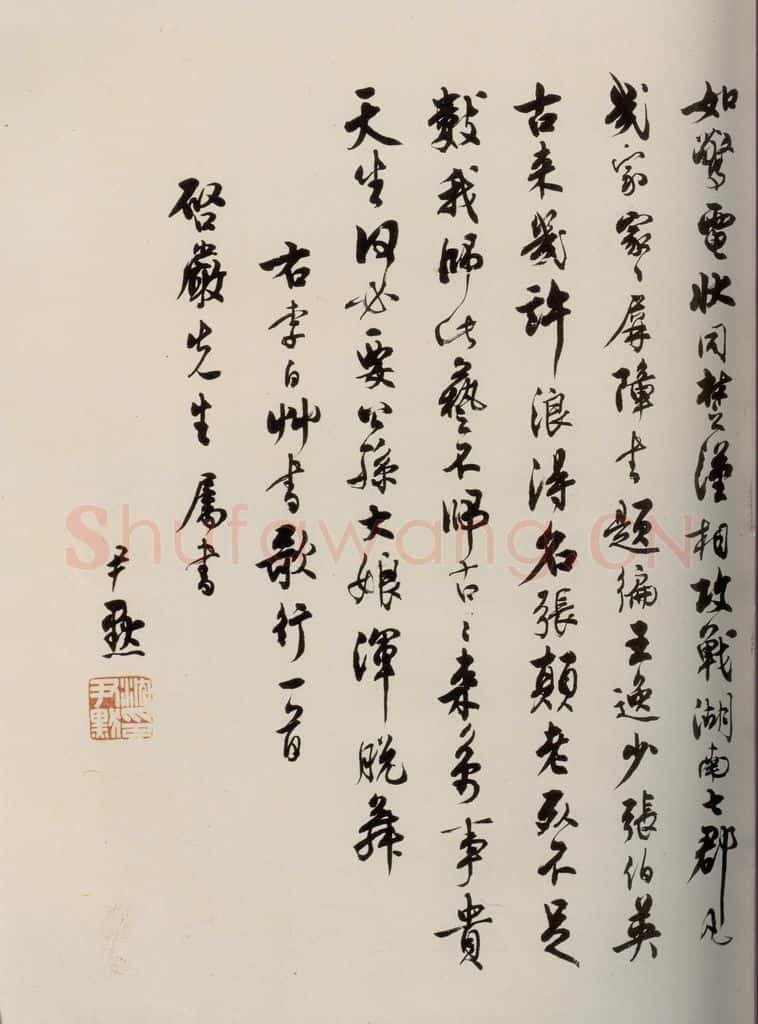 如驚電狀同楚漢相攻戰湖南七郡凡
幾家家〻屏障書題徧王逸少張伯英
古來幾許浪得名張顛老死不足
數我師此藝不師古〻來萬事貴
天生何必要公孫大娘渾脫舞
右李白艸書歌行一首
啓嚴先生屬書
尹默
Shufawang.CN